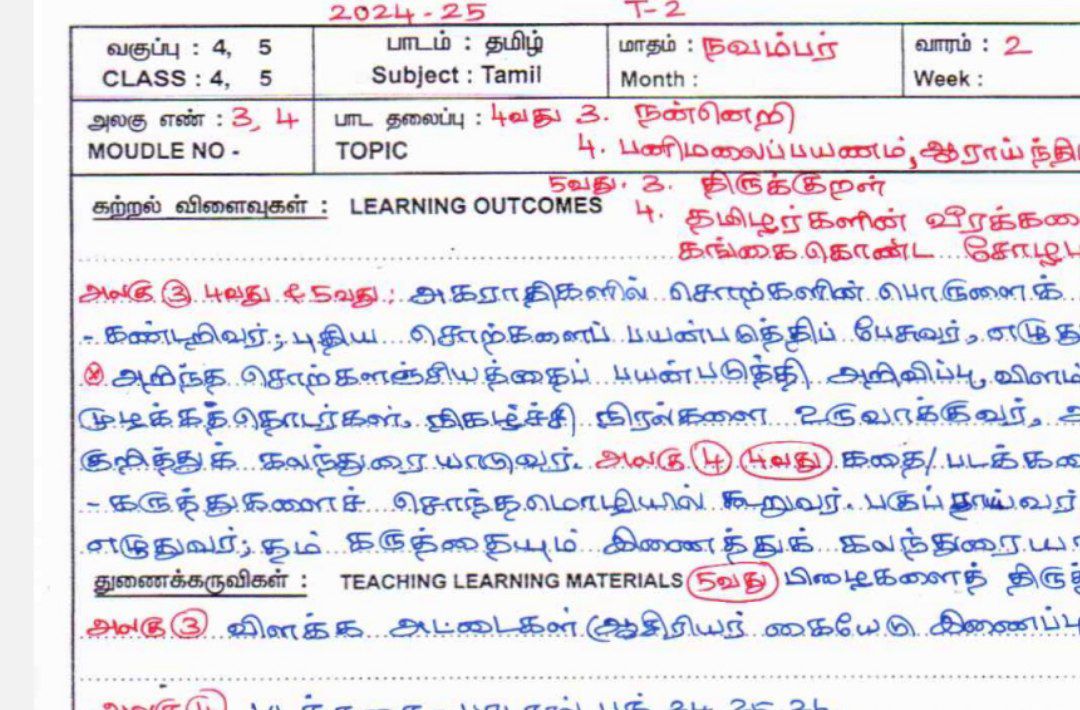 2024-25 T-2
வகுப்பு : 4, 5 பாடம் : தமிழ் மாதம் : நவம்பர் வாரம் : 2
CLASS : 4, 5 Subject : Tamil Month : Week :
அலகு எண் : 3, 4 பாட தலைப்பு : 4வது 3. நன்னெறி
MOUDLE NO - TOPIC 4. பனிமலைப்பயணம், ஆராய்ந்தி
5வது. 3. திருக்குறள்
கற்றல் விளைவுகள் : LEARNING OUTCOMES 4. தமிழர்களின் வீரக்கலை
கங்கை கொண்ட சோழபு
அலகு 3 4வது & 5வது : அகராதிகளில் சொற்களின் பொருளைக்
- கண்டறிவர்; புதிய சொற்களைப் பயன்படுத்திப் பேசுவர், எழுது
அறிந்த சொற்களஞ்சியத்தைப் பயன்படுத்தி அறிவிப்பு, விளம்
முழக்கத்தொடர்கள், நிகழ்ச்சி நிரல்களை உருவாக்குவர், அ
குறித்துக் கலந்துரையாடுவர். அலகு 4 4வது கதை/ படக்கதை
- கருத்துகளைச் சொந்தமொழியில் கூறுவர். பகுப்பாய்வர்
எழுதுவர்; தம் கருத்தையும் இணைத்துக் கலந்துரையா
துணைக்கருவிகள் : TEACHING LEARNING MATERIALS 5வது பிழைகளைத் திருத்
அலகு 3 விளக்க அட்டைகள் (ஆசிரியர் கையேடு இணைப்பு
அலகு 4 24, 25, 26